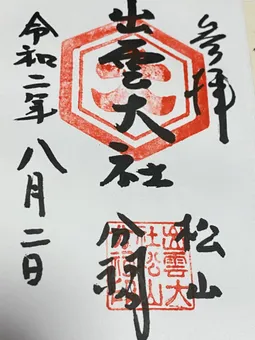 参拝
出雲大社
松山
分祠
令和二年
八月二日
出雲大
社松山
分祠印